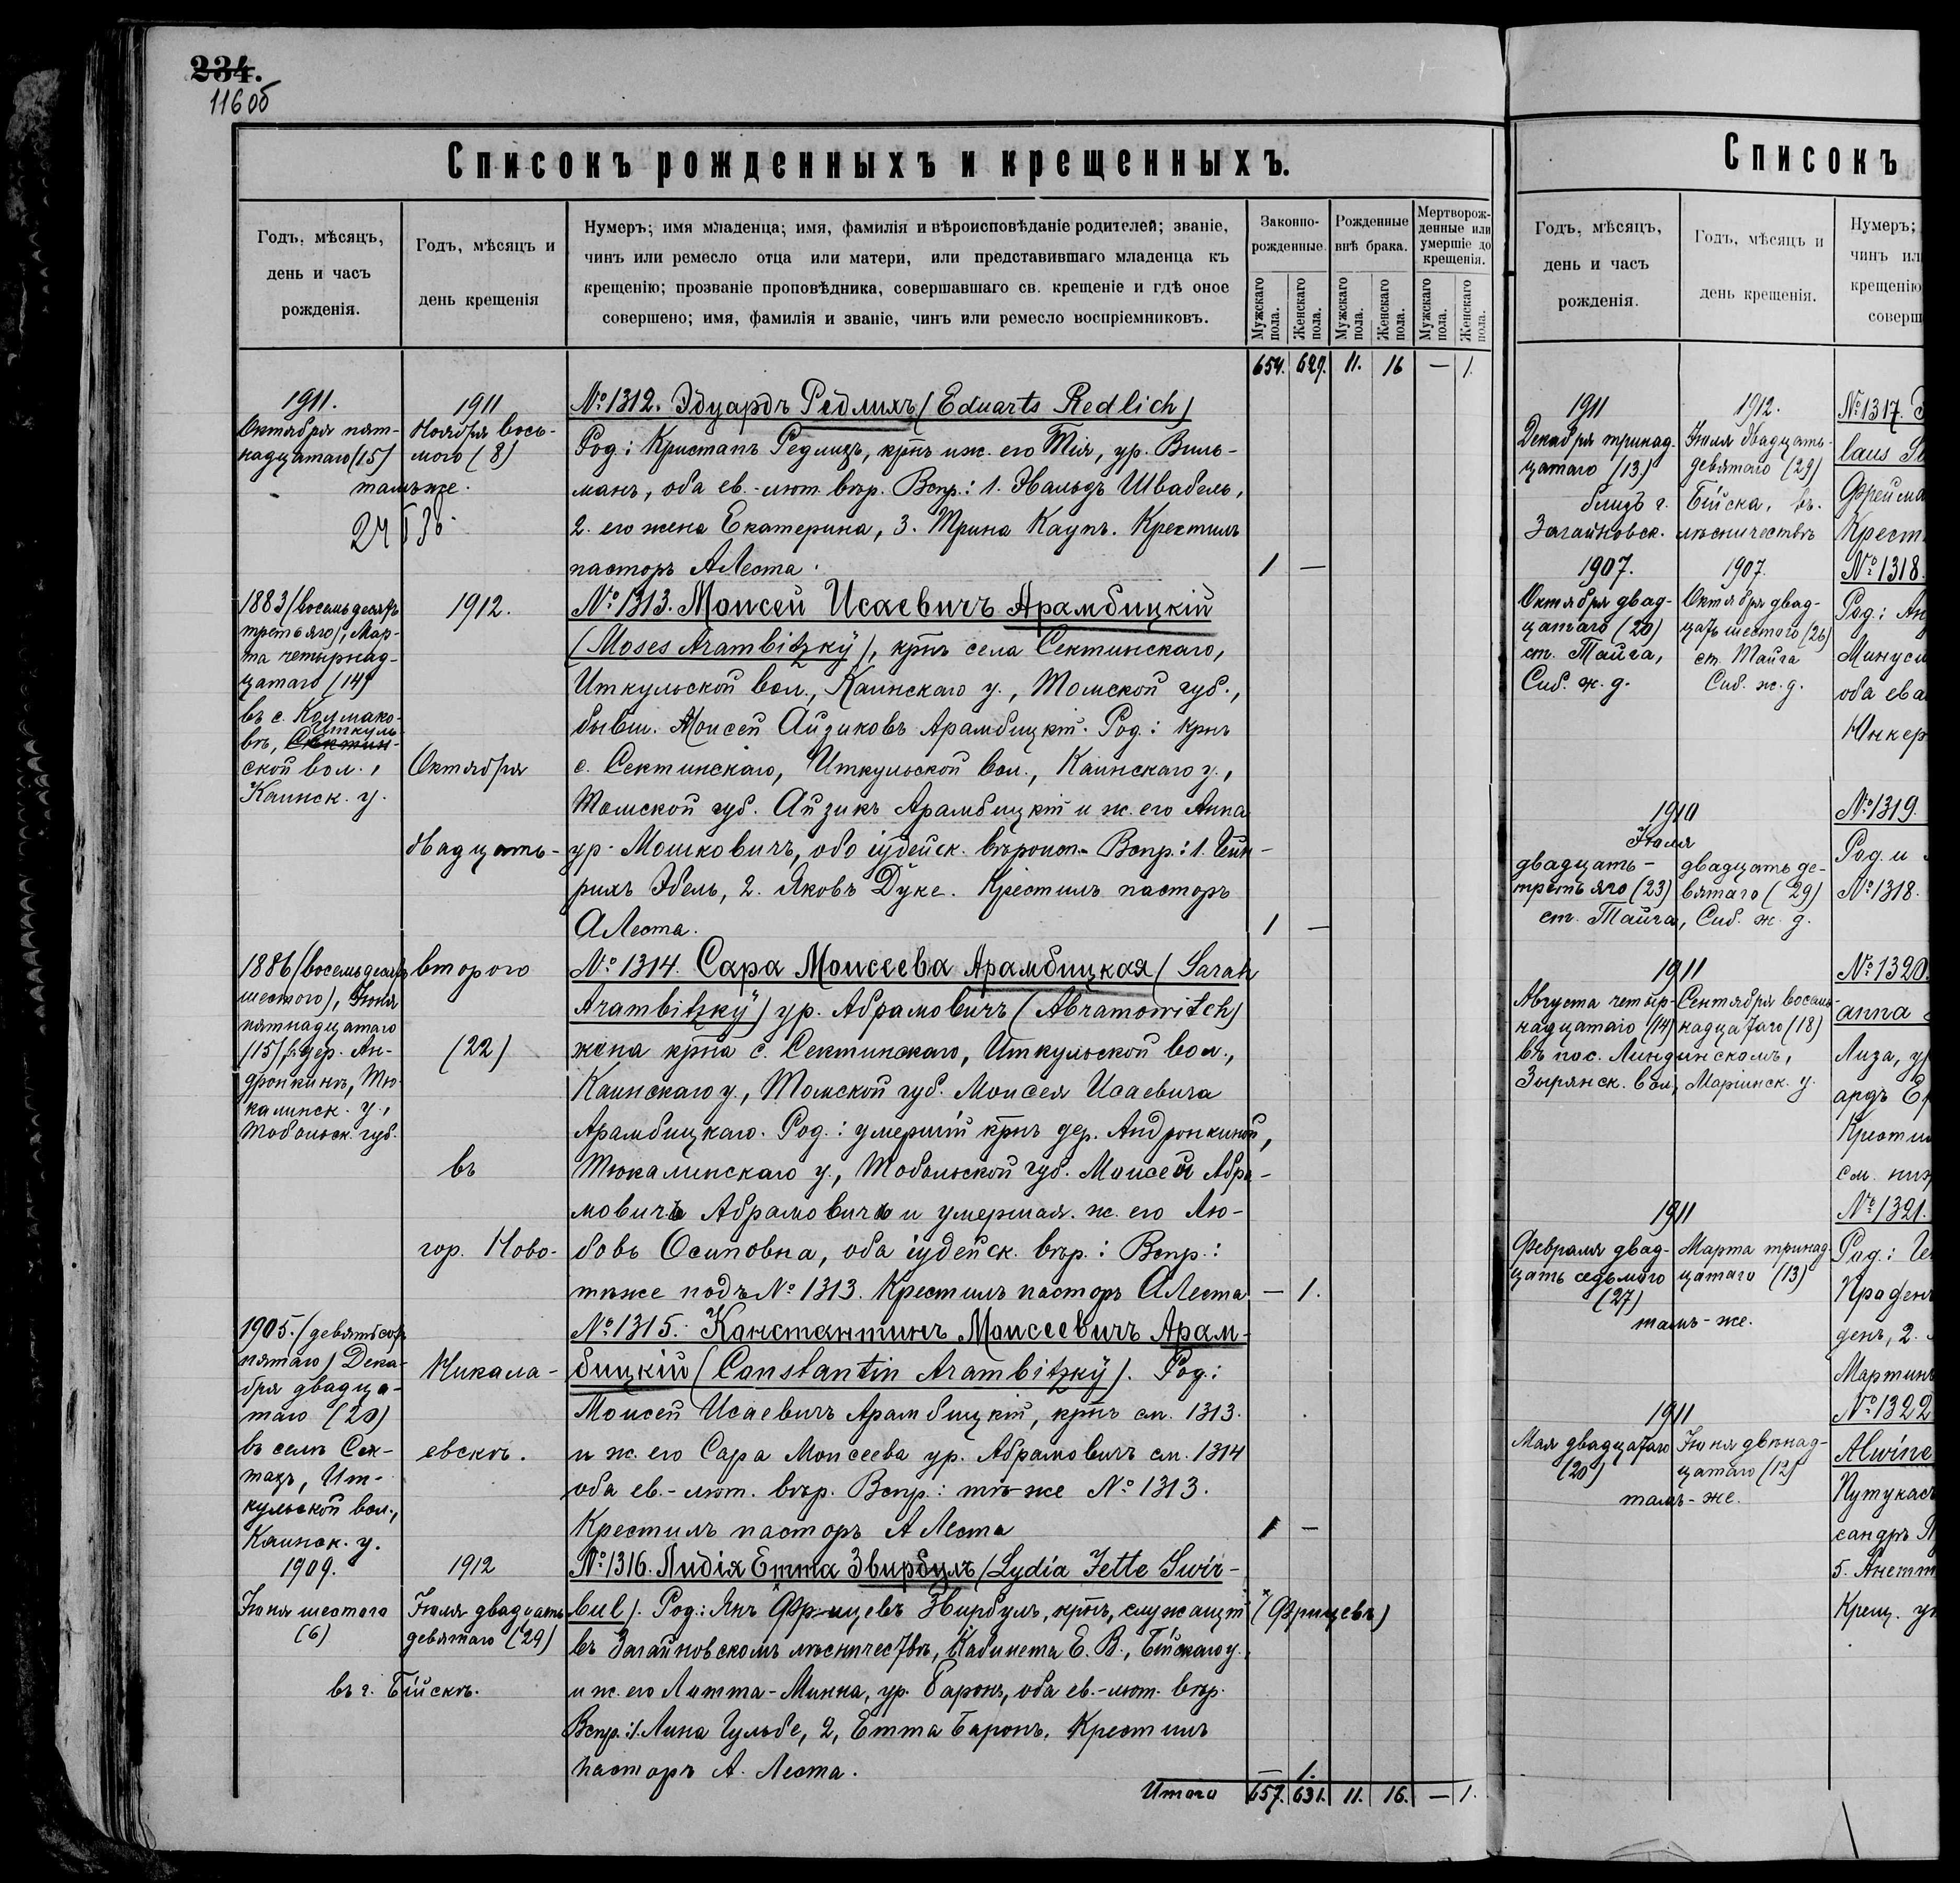 234.
116об
Списокъ рожденныхъ и крещенныхъ.
Годъ, мѣсяцъ,
день и часъ
рожденія.
Годъ, мѣсяцъ и
день крещенія
Нумеръ; имя младенца; имя, фамилія и вѣроисповѣданіе родителей; званіе,
чинъ или ремесло отца или матери, или представившаго младенца къ
крещенію; прозваніе проповѣдника, совершавшаго св. крещеніе и гдѣ оное
совершено; имя, фамилія и званіе, чинъ или ремесло воспріемниковъ.
Законно-
рожденные.
Рожденные
внѣ брака.
Мертворож-
денные или
умершіе до
крещенія.
Мужскаго пола.
Женскаго пола.
Мужскаго пола.
Женскаго пола.
Мужскаго пола.
Женскаго пола.
654. 629. 11. 16 — 1.
1911.
Октября пят-
надцатаго (15)
1911
Ноября вось-
мого (8)
тамъ же.
№ 1312. Эдуардъ Редлихъ (Eduarts Redlich)
Род: Кристапъ Редлихъ, крнъ и ж. его Тія, ур. Виль-
манъ, оба ев.-лют. вѣр. Вспр.: 1. Эвальдъ Швабель,
2. его жена Екатерина, 3. Трина Каупъ. Крестилъ
пасторъ А Леста.
1 —
1883 (восемьдесятъ
третьяго), Мар-
та четырнад-
цатаго (14)
въ с. Колмако-
вѣ, Иткуль-
ской вол.,
Каинск. у.
1912.
Октября
двадцать-
второго
(22)
въ
гор. Ново-
Никола-
евскѣ.
№ 1313. Моисей Исаевичъ Арамбицкій
(Moses Arambitzkÿ), крнъ села Сектинскаго,
Иткульской вол., Каинскаго у., Томской губ.,
бывш. Моисей Айзиковъ Арамбицкій. Род.: крнъ
с. Сектинскаго, Иткульской вол., Каинскаго у.,
Томской губ. Айзикъ Арамбицкій и ж. его Анна
ур. Мошковичъ, обо іудейск. вѣроисп. Вспр.: 1. Гейн-
рихъ Эбель, 2. Яковъ Дуке. Крестилъ пасторъ
А Леста.
1 —
1886 (восемьдесятъ
шестого), Іюня
пятнадцатаго
(15) въ дер. Ан-
дронкинѣ, Тю-
калинск. у.,
Тобольск. губ.
№ 1314. Сара Моисеева Арамбицкая (Sarah
Arambitzkÿ) ур. Абрамовичъ (Abramowitch)
жена крна с. Сектинскаго, Иткульской вол.,
Каинскаго у., Томской губ. Моисея Исаевича
Арамбицкаго. Род.: умершій крнъ дер. Андронкиной,
Тюкалинскаго у., Тобольской губ. Моисей Абра-
мовичъ Абрамовичъ и умершая ж. его Лю-
бовь Осиповна, оба іудейск. вѣр.: Вспр.:
тѣже подъ № 1313. Крестилъ пасторъ А Леста
— 1.
1905. (девятьсотъ
пятаго) Дека-
бря двадца-
таго (20)
въ селѣ Сек-
тахъ, Ит-
кульской вол.,
Каинск. у.
№ 1315. Константинъ Моисеевичъ Арам-
бицкій (Constantin Arambitzkÿ). Род.:
Моисей Исаевичъ Арамбицкій, крнъ см. 1313.
и ж. его Сара Моисеева ур. Абрамовичъ см. 1314
оба ев.-лют. вѣр. Вспр.: тѣ-же № 1313.
Крестилъ пасторъ А Леста
1 —
1909.
Іюня шестого
(6)
1912
Іюля двадцать
девятаго (29)
въ г. Бійскѣ.
№ 1316. Лидія Етта Звирбулъ (Lydia Jette Swir-
bul). Род.: Янъ Фрицевъ Звирбулъ, крнъ, служащій *(Фрицевъ)
въ Загайновскомъ лѣсничествѣ, Кабинета Е. В., Бійскаго у.
и ж. его Латта-Минна, ур. Баронъ, оба ев.-лют. вѣр.
Вспр.: 1. Лина Гульбе, 2, Етта Баронъ. Крестилъ
пасторъ А. Леста.
— 1.
Итого 657. 631. 11. 16. — 1.
Списокъ
Годъ, мѣсяцъ,
день и часъ
рожденія.
Годъ, мѣсяцъ и
день крещенія.
Нумеръ;
чинъ ил
крещенію
соверш
1911
Декабря тринад-
цатаго (13.)
1912.
Іюля двадцать-
девятаго (29)
близъ г. Бійска, въ
Загайновск. лѣсничествѣ
№ 1317.
laus
Фрейма
Крест
1907.
Октября двад-
цатаго (20)
ст. Тайга,
Сиб. ж. д.
1907.
Октября двад-
цать шестого (26)
ст. Тайга
Сиб. ж. д.
№ 1318.
Род: Ан
Минуси
оба ева
Юнкер
1910
Іюля
двадцать-
третьяго (23)
двадцать де-
вятаго (29)
ст. Тайга, Сиб. ж. д.
№ 1319.
Род. и
№ 1318.
1911
Августа четыр-
надцатаго (14)
Сентября восем-
надцатаго (18)
въ пос. Линдинскомъ,
Зырянск. вол., Маріинск. у.
№ 1320.
anna
Лиза, ур
ардъ
Крести
см. ниж
1911
Февраля двад-
цать седьмого
(27)
Марта тринад-
цатаго (13)
тамъ-же.
№ 1321.
Род.:
Краген
денъ, 2.
Мартинъ
1911
Мая двадцатаго
(20)
Іюня двѣнад-
цатаго (12)
тамъ-же.
№ 1322
Alwine
Путукас
сандръ
5. Анетт
Крещ. ум